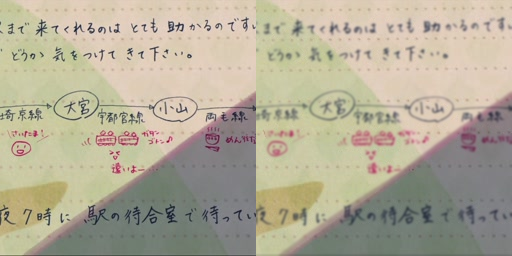 まで来てくれるのは とても 助かるのです
どうか 気をつけて きて下さい。
埼京線 大宮 宇都宮線 小山 両毛線
さいたま! ガタンゴトン♪
遠いよー…
夜7時に 駅の待合室で待ってい
まで来てくれるのは とても 助かるのです
どうか 気をつけて きて下さい。
埼京線 大宮 宇都宮線 小山 両毛線
遠いよー…
夜7時に 駅の待合室で待ってい